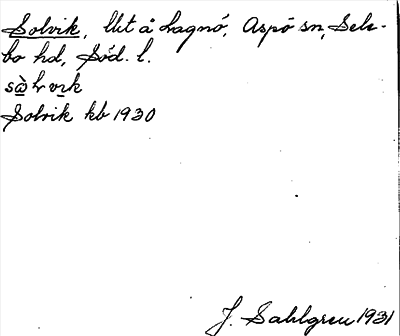 Solvik, lht å Lagnö, Aspö sn, Sele-
bo hd, Söd. l.
sὼlvιk
Solvik kb 1930
J. Sahlgren 1931